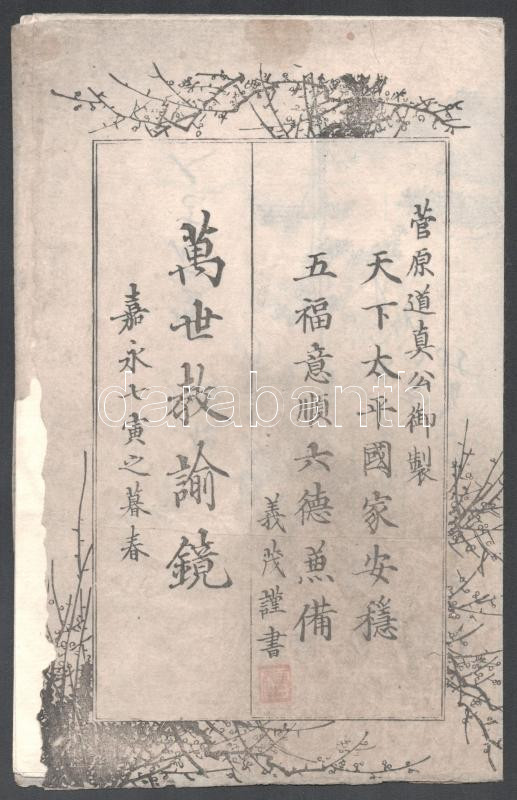 菅原道真公御製
天下太平國家安穩
五福意順六德兼備
義茂謹書
萬世教諭鏡
嘉永七寅之暮春
darabanth